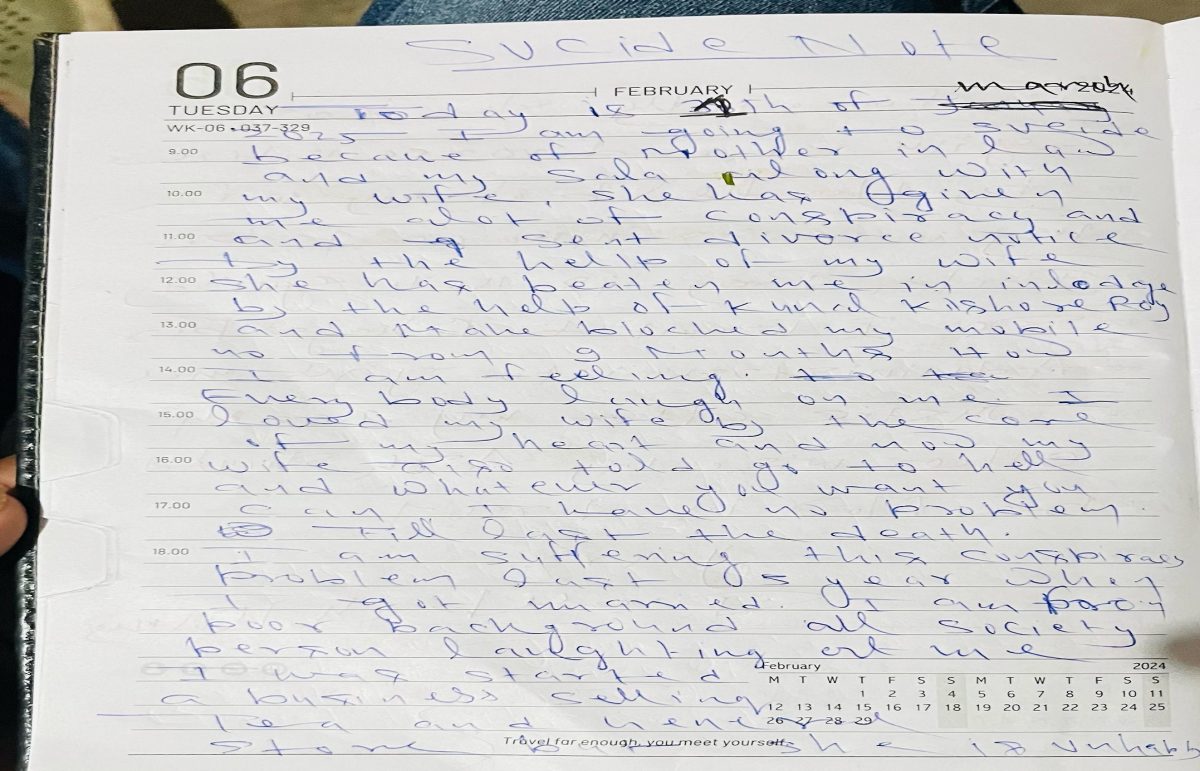 Sucide Note
06
TUESDAY
FEBRUARY
March
Today is th of
WK-06 • 037-329
2025 I am going to sucide
9.00
becaue of Mother in law
and my Sala along with
10.00
my wife, she has given
me alot of conspiracy and
11.00
and sent divorce notice
by the help of my wife
12.00
she has beaten me in
by the help of Kishore Roy
13.00
and Make blocked my mobile
no from 9 Months How
14.00
I am feeling.
Every body laugh on me. I
15.00
loved my wife by the core
of my heart and now my
16.00
wife also told go to hell
and whatever you want you
17.00
can I have no problem.
Till last the death.
18.00
I am suffering this conspiracy
problem last 05 year when
I got married. I am
poor background all society
person laughting at me
I was started
a business selling
Tea and
Store she is unhappy
February 2024
M T W T F S S M T W T F S S
1 2 3 4 5 6 7 8 9 10 11
12 13 14 15 16 17 18 19 20 21 22 23 24 25
26 27 28 29
Travel far enough, you meet yourself.